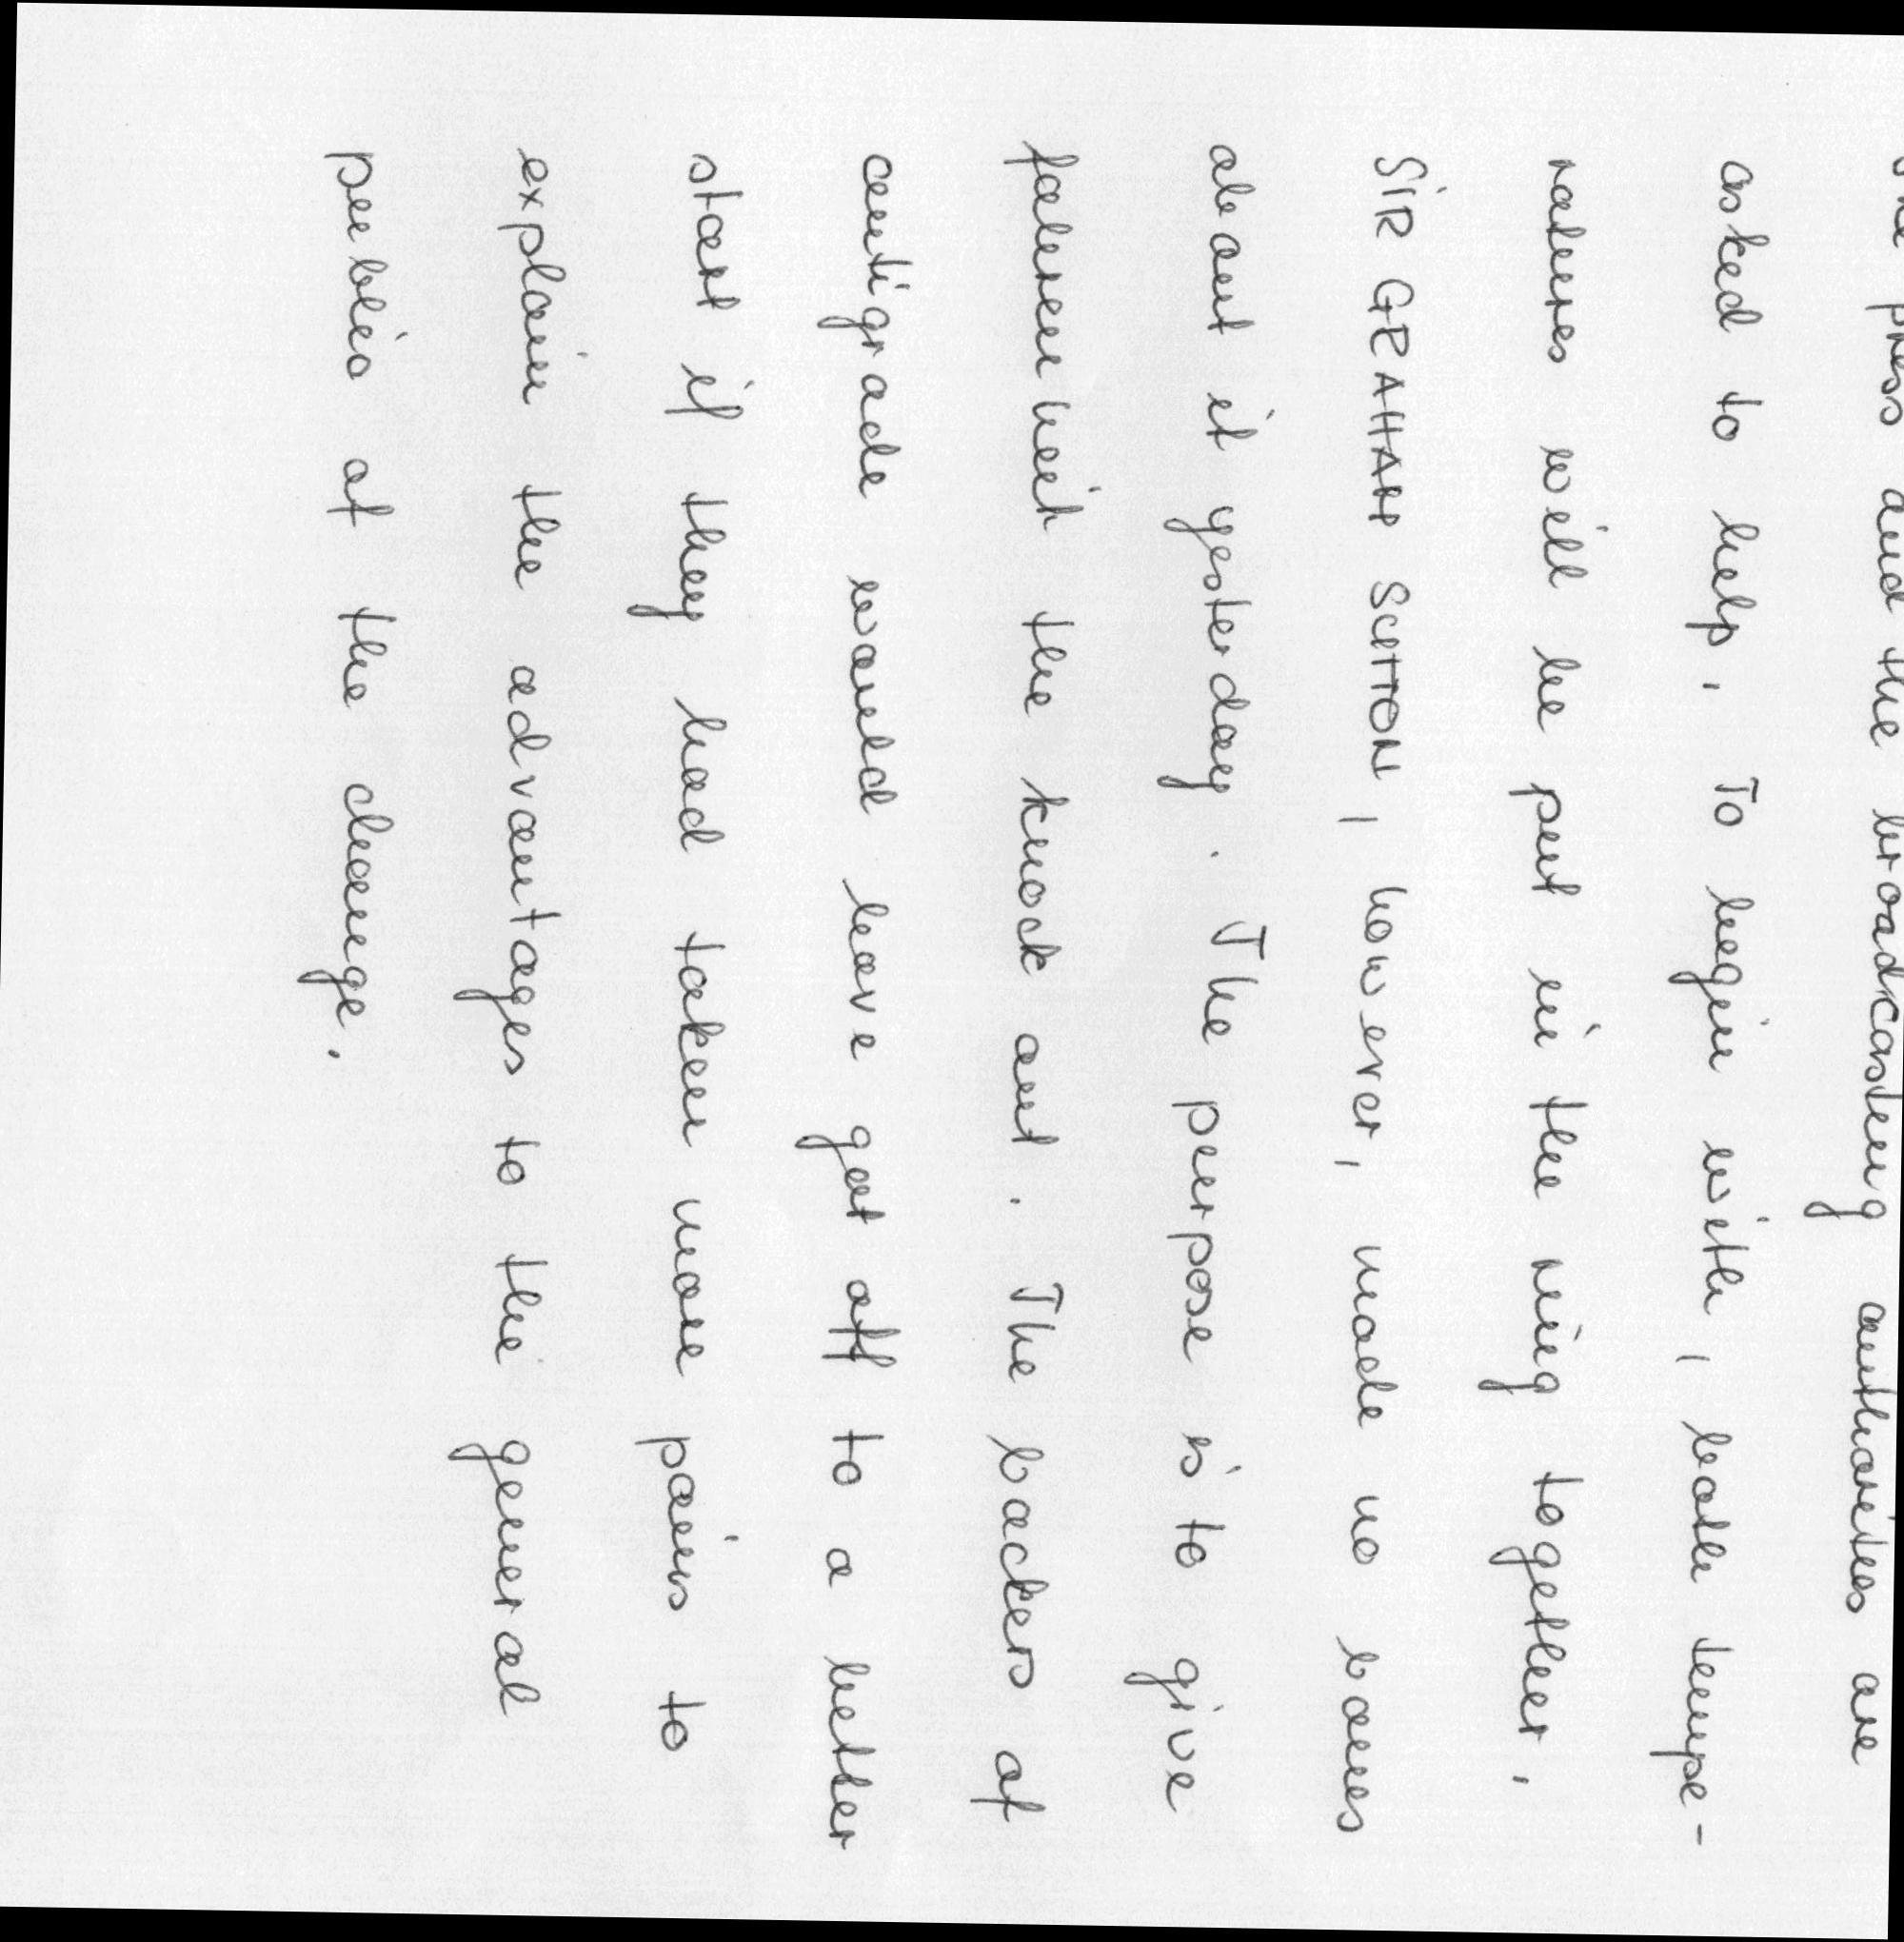 the press and the broadcasting authorities are
asked to help. To begin with, both tempe-
ratures will be put in the ring together.
SIR GRAHAM SUTTON, however, made no bones
about it yesterday. The purpose is to give
fahrenheit the knock out. The backers of
centigrade would have got off to a better
start if they had taken more pains to
explain the advantages to the general
public of the change.